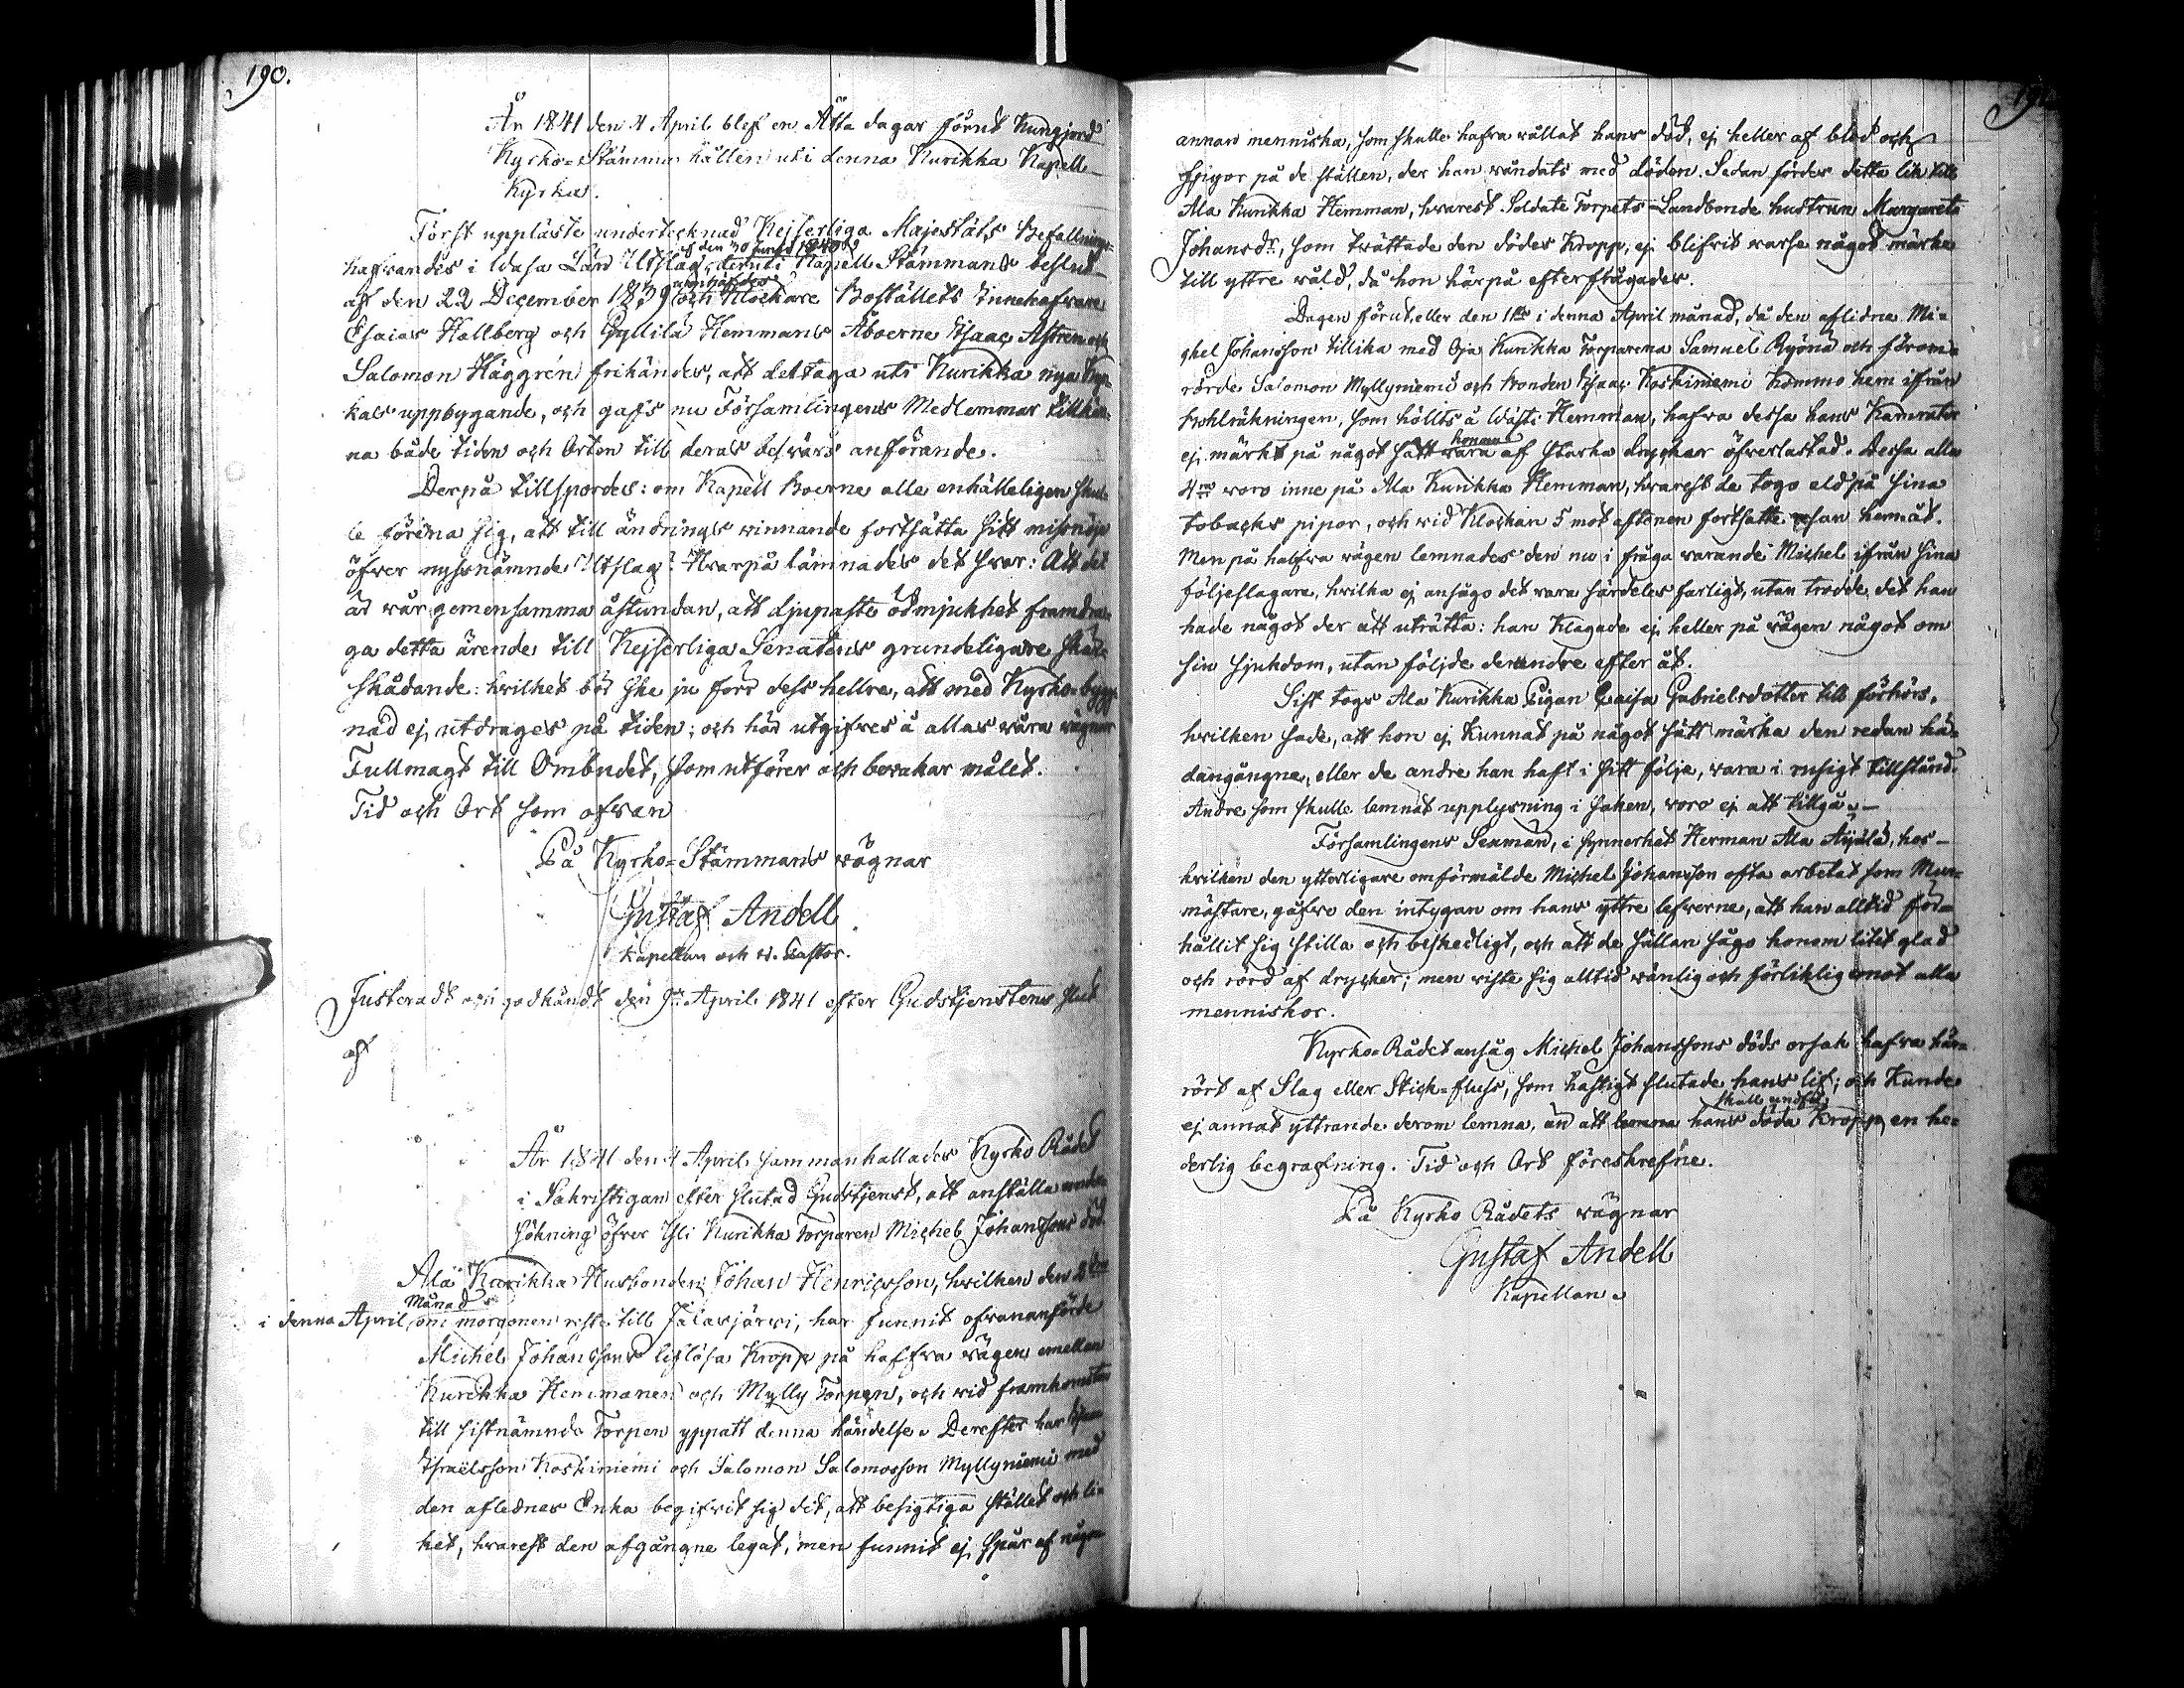 190.
År 1841 den 4 April blef en Åtta dagar förut kungjord
Kyrko-Stämma hållen uti denna Kurikka Kapell
Kyrka.
Först uppläste undertecknad Kejserliga Majestäts Befallnings-
af den 30 Junii 1840
hafvandes i Wasa Län Utslag, deruti Kapell Stämmans beslut
af den 22 December 1839 och Klockare Boställets Innehafvare
Esaias Hallberg och Pyllilä Hemmans Åboerne Isaac Astren och
Salomon Häggrén frikändes, att deltaga uti Kurikka nya Kyr-
kas uppbygande, och gafs nu Församlingens Medlemmar tillkän-
na både tiden och Orten till deras besvärs anförande.
Derpå tillspordes: om Kapell Boerne alle enhälleligen skul-
le förena sig, att till ändrings winnande fortsätta sitt missnöje
öfver nyssnämnde Utslag? Hvarpå lämnades det svar: Att det
är vår gemensamma åstundan, att djupaste ödmjukhet framdra-
ga detta ärende till Kejserliga Senatens grundeligare skär-
skådande: hvilket bör ske ju förr dess hellre, att med Kyrko-bygg-
nad ej utdrages på tiden; och här utgifves å allas våra vägnar
Fullmagt till Ombudet, som utförer och bevakar målet.
Tid och Ort som ofvan
På Kyrko-Stämmans vägnar
Gustaf Andell
Kapellan och v. Pastor.
Justeradt och godkändt den 9de April 1841 efter Gudstjenstens slut
af
År 1841 den 4 April sammankallades Kyrko Rådet
i Sakristigan efter slutad Gudstjenst, att anställa under-
sökning öfver Yli Kurikka Torparen Michel Johanssons död.
Ala Kurikka Husbonden Johan Henricsson, hvilken den 2dra
Månad
i denna April om morgonen reste till Jalasjärvi, har funnit ofvananförde
Michel Johanssons liflösa Kropp på halfva vägen emellan
Kurikka Hemmanen och Mylly Torpen, och vid framkomsten
till sistnämnde Torpen yppatt denna händelse. Derefter har Isaac
Israëlsson Koskiniemi och Salomon Salomosson Myllyniemi med
den aflednes Enka begifvit sig dit, att besigtiga stället och li-
ket, hvarest den afgångne legat, men funnit ej spår af någon
191.
annan menniska, som skulle hafva vållat hans död, ej heller af blod och
spyor på de ställen, der han våndats med döden. Sedan fördes detta lik till
Ala Kurikka Hemman, hvarest Soldate Torpets-Landbonde hustrun Margareta
Johansdr, som tvättade den dödes Kropp, ej blifvit varse något märke
till yttre våld, då hon härpå efterfrågades.
Dagen förut, eller den 1sta i denna April månad, då den aflidna Mi-
chel Johansson tillika med Oja Kurikka Torparena Samuel Ryönä och förom-
rörde Salomon Myllyniemi och bonden Isaac Koskiniemi kommo hem ifrån
kohlräkningen, som hölts å Wästi Hemman, hafva dessa hans Kamerater
honom
ej märkt på något sätt vara af starka drycker öfverlastad. Dessa alla
4ra voro inne på Ala Kurikka Hemman, hvarest de togo eld på sina
tobacks pipor, och vid Klockan 5 mot aftonen fortsatte resan hemåt.
Men på halfva vägen lemnades den nu i fråga varande Michel ifrån sina
följeslagare, hvilka ej ansågo det vara särdeles farligt, utan trodde det han
hade något der att uträtta: han klagade ej heller på vägen något om
sin sjukdom, utan följde de andre efter åt.
Sist togs Ala Kurikka Pigan Caisa Gabrielsdotter till förhörs,
hvilken sade, att hon ej kunnat på något sätt märka den redan hä-
dangångne, eller de andre han haft i sitt följe, vara i rusigt tillstånd.
Andre som skulle lemnat upplysning i saken, voro ej att tillgå.-
Församlingens Sexmän, i synnerhet Herman Ala Äijälä, hos-
hvilken den ytterligare omförmälde Michel Johansson ofta arbetat som Mur-
mästare, gåfvo den intygan om hans yttre lefverne, att han alltid för-
hållit sig stilla och beskedligt, och att de sällan sågo honom litet glad
och rörd af drycker; men viste sig alltid vänlig och förliklig emot alla
menniskor.
Kyrko-Rådet ansåg Michel Johanssons döds orsak hafva här-
rört af Slag eller Stick-fluss, som hastigt slutade hans lif; och kunde
skall undfå
ej annat yttrande derom lemna, än att lemna hans döda Kropp en he-
derlig begrafning. Tid och Ort föreskrefne.
På Kyrko Rådets vägnar
Gustaf Andell
Kapellan.